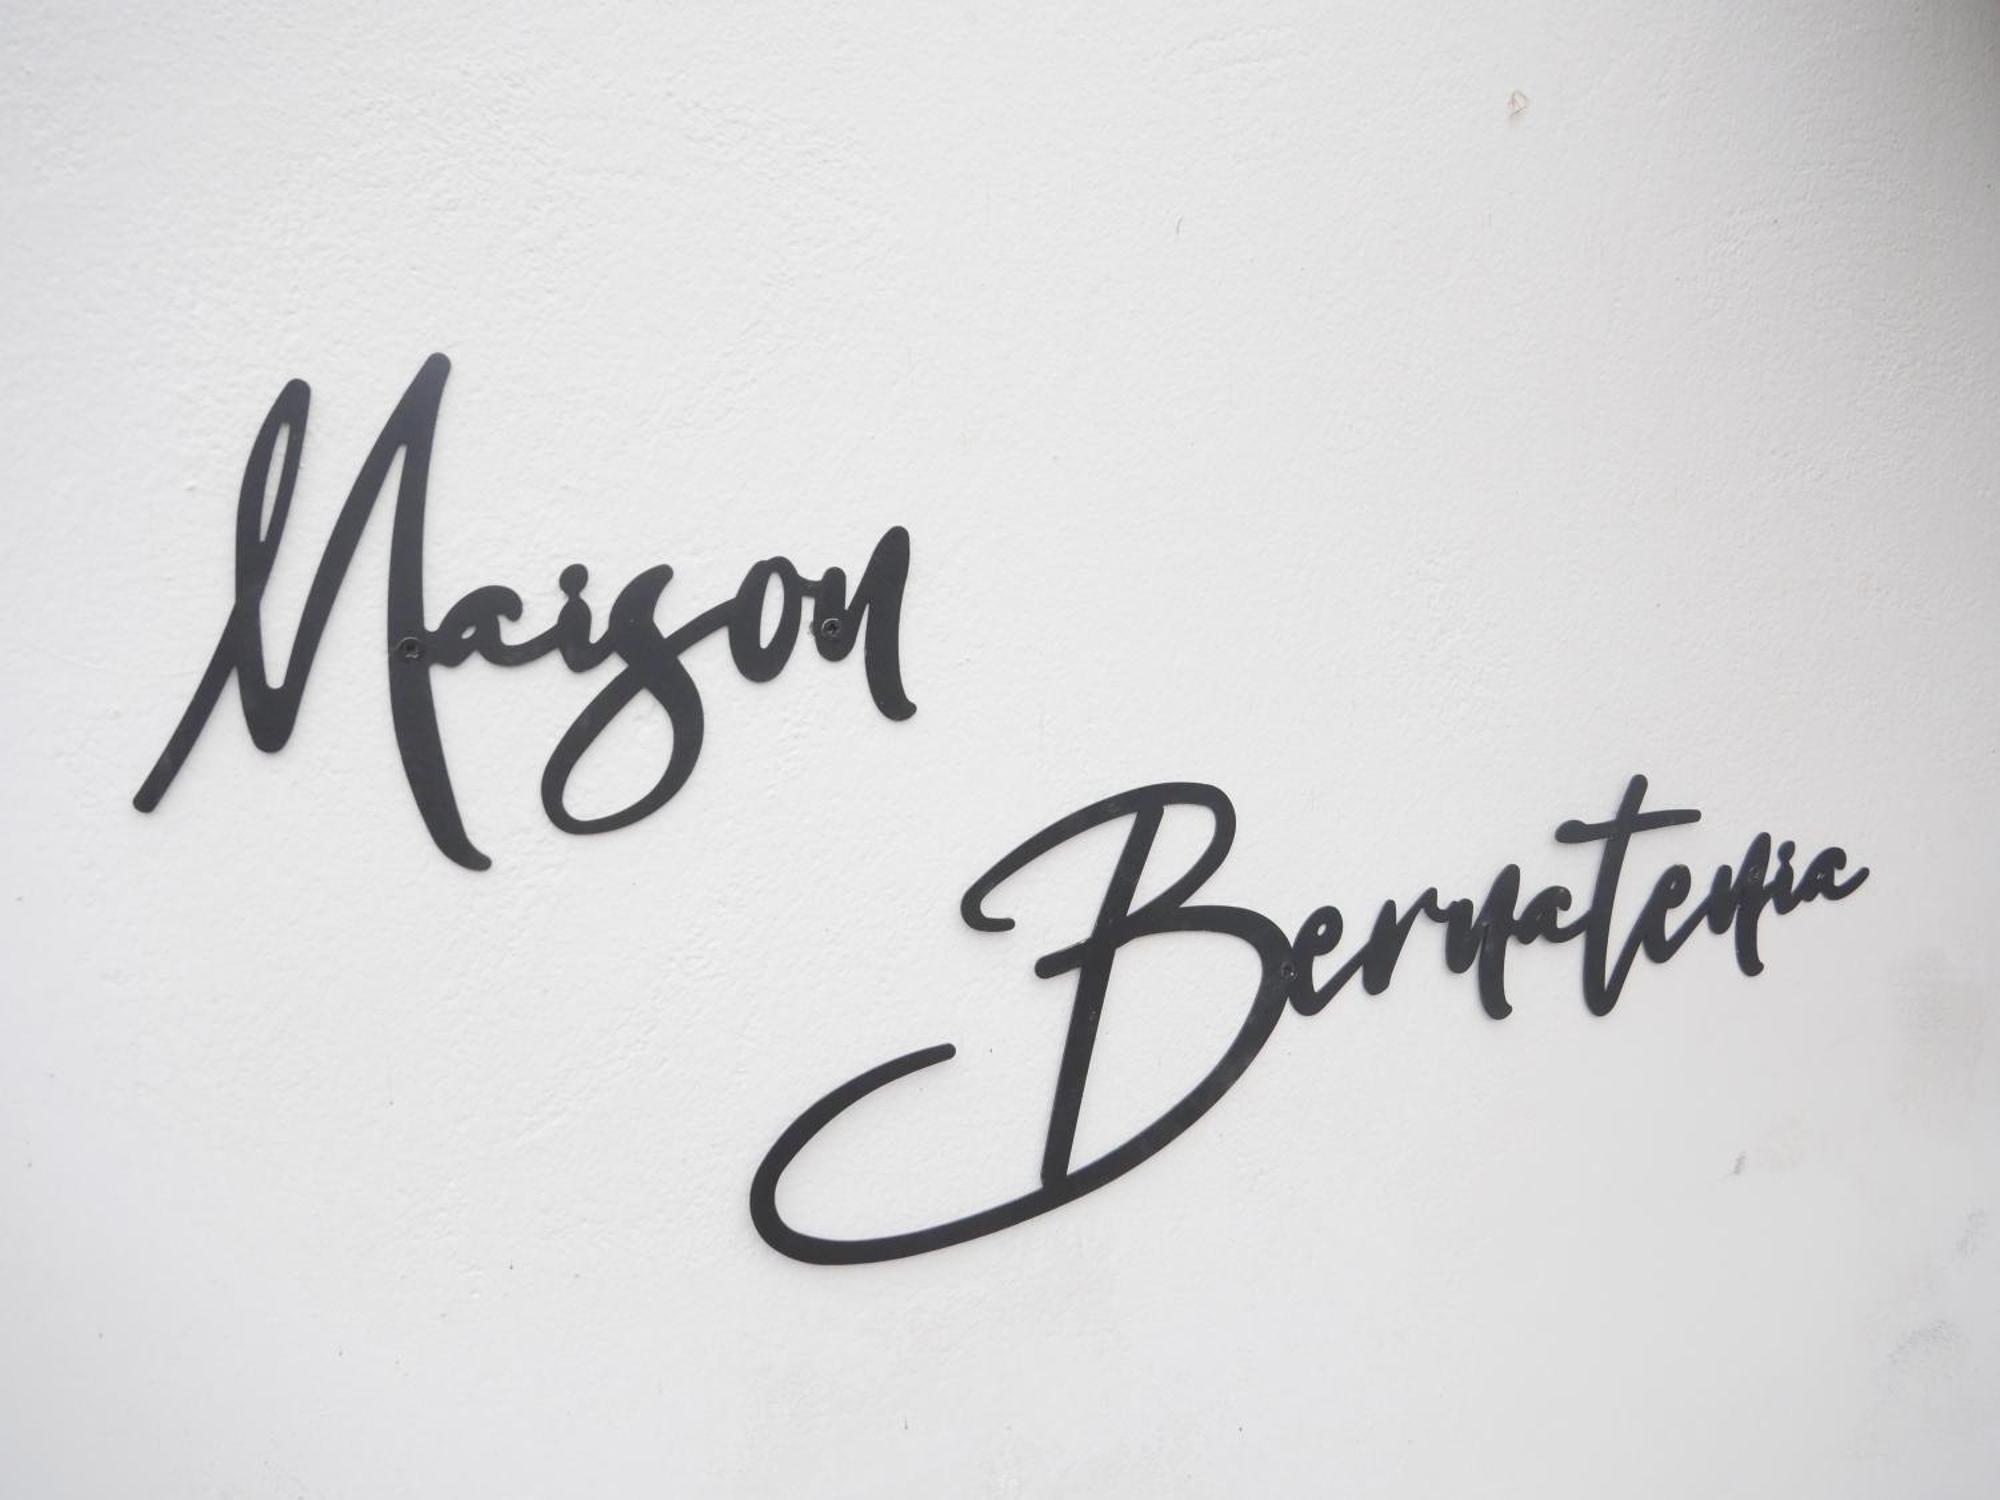 Maison
Bernatenia